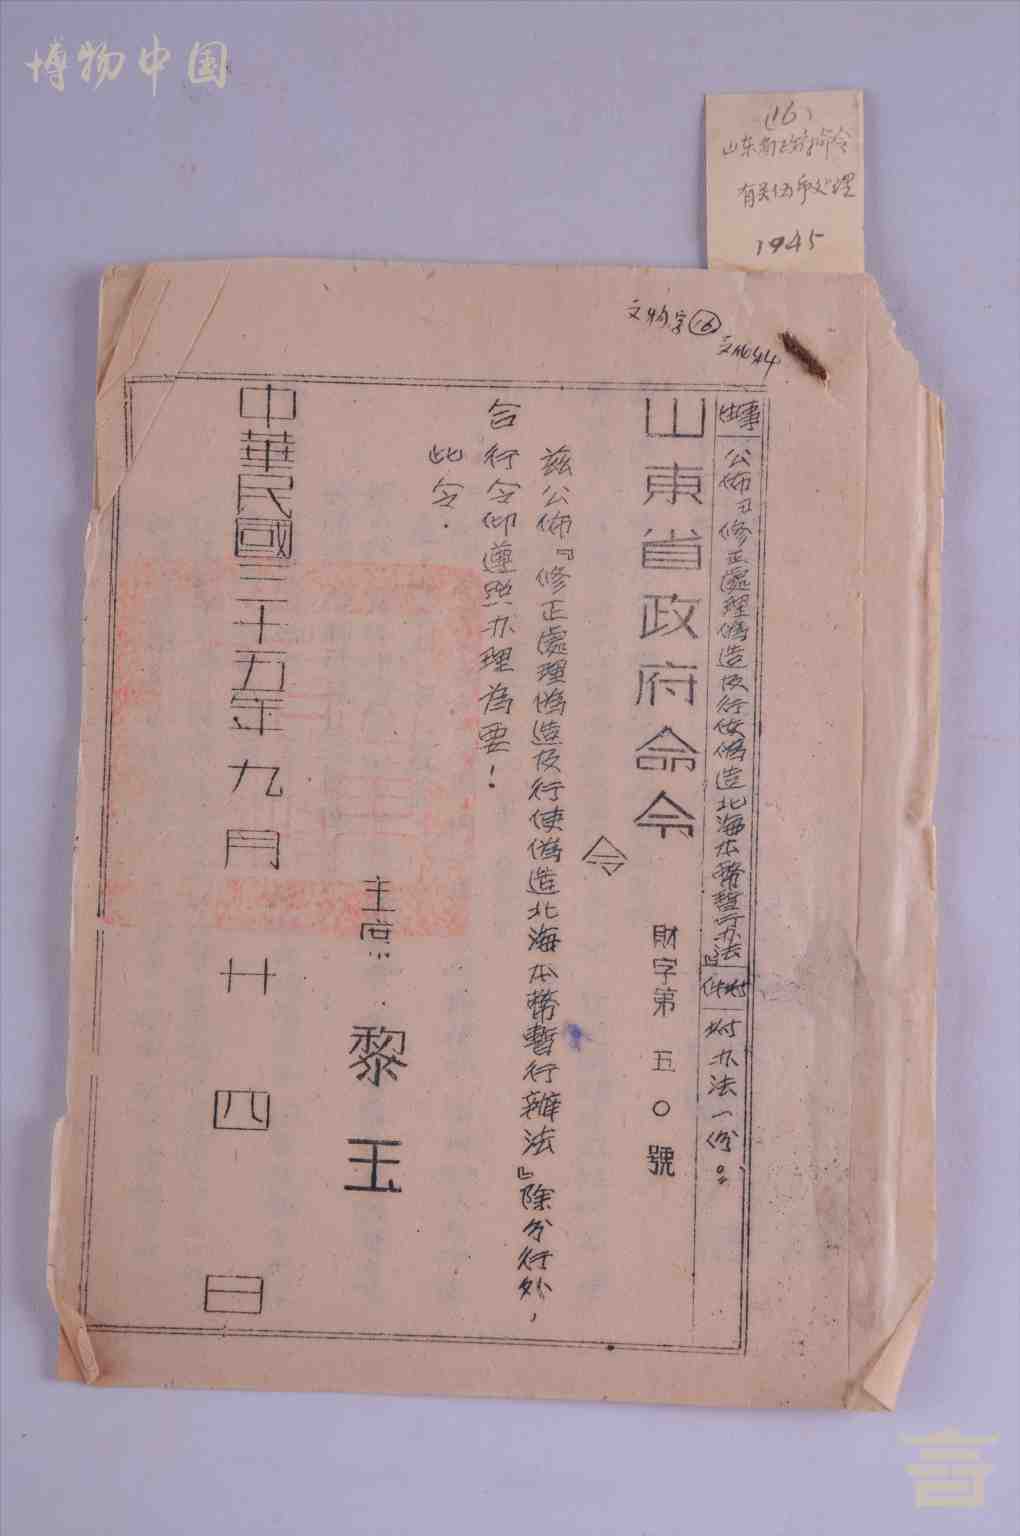 博物中国
(16)
山东省政府命令
有关伪币处理
1945
文物字⑯
事由
公佈『修正處理偽造及行使偽造北海本幣暫行办法』
附件
附办法一份。
山東省政府命令 財字第五〇號
令
茲公佈『修正處理偽造及行使偽造北海本幣暫行辦法』除分行外，
合行令仰遵照办理為要！
此令．
主席 黎玉
中華民國三十五年九月廿四日
言